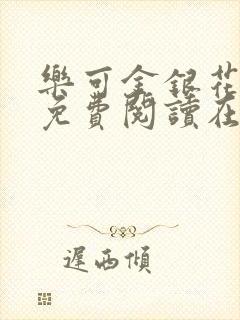 樂可金銀花
免費閱讀在
遲西傾